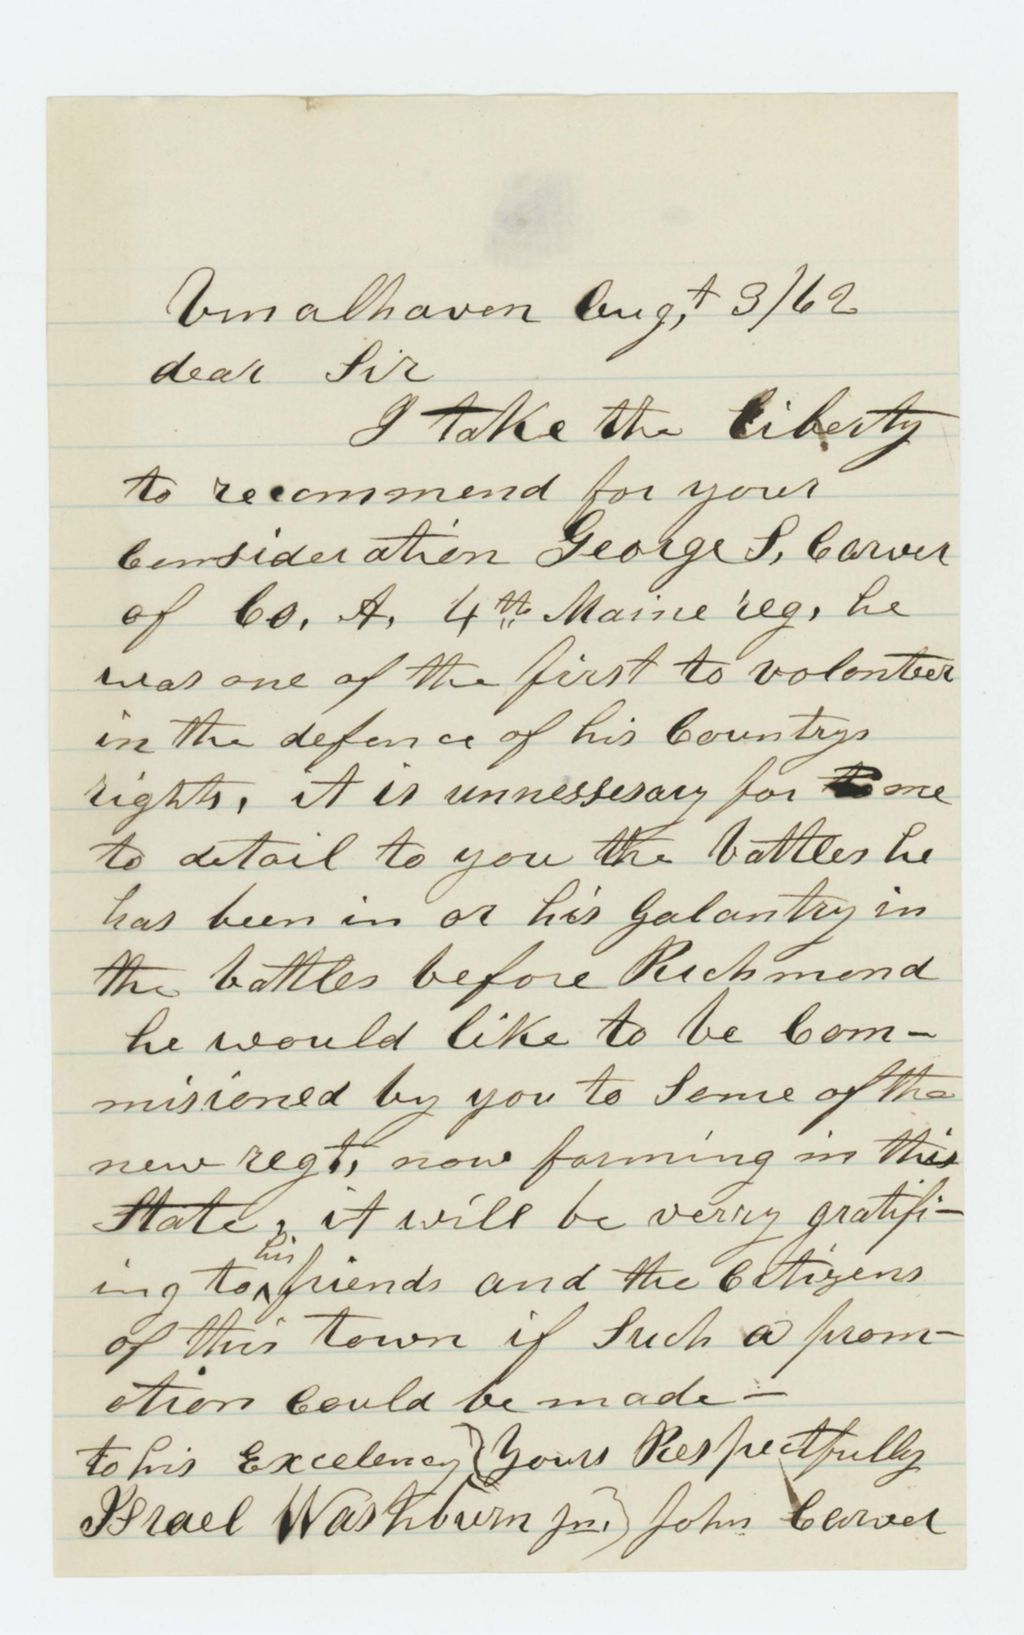 Vinalhaven Augt, 3/62
dear Sir
I take the liberty
to recommend for your
Consideration George S, Carver
of Co, A, 4th Maine reg, he
was one of the first to volonteer
in the defence of his Countrys
rights, it is unnessesary for me
to detail to you the battles he
has been in or his Galantry in
the battles before Richmond
he would like to be Com-
misioned by you to Some of the
new regt, now forming in this
State, it will be verry gratifi-
ing to his friends and the Citizens
of this town if Such a prom-
otion Could be made -
to his Excelency } Yours Respectfully
Israel Washburn jn. } John Carver